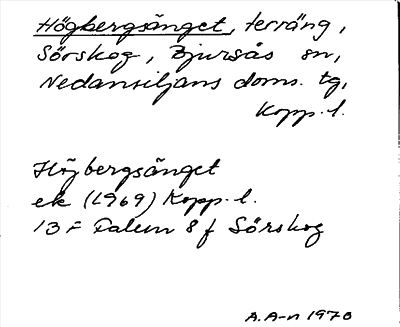 Högbergsänget, terräng,
Sörskog, Bjursås sn,
Nedansiljans doms. tg,
Kopp. l.
Högbergsänget
ek (1969) Kopp. l.
13 F Falun 8 f Sörskog
A.A-n 1970